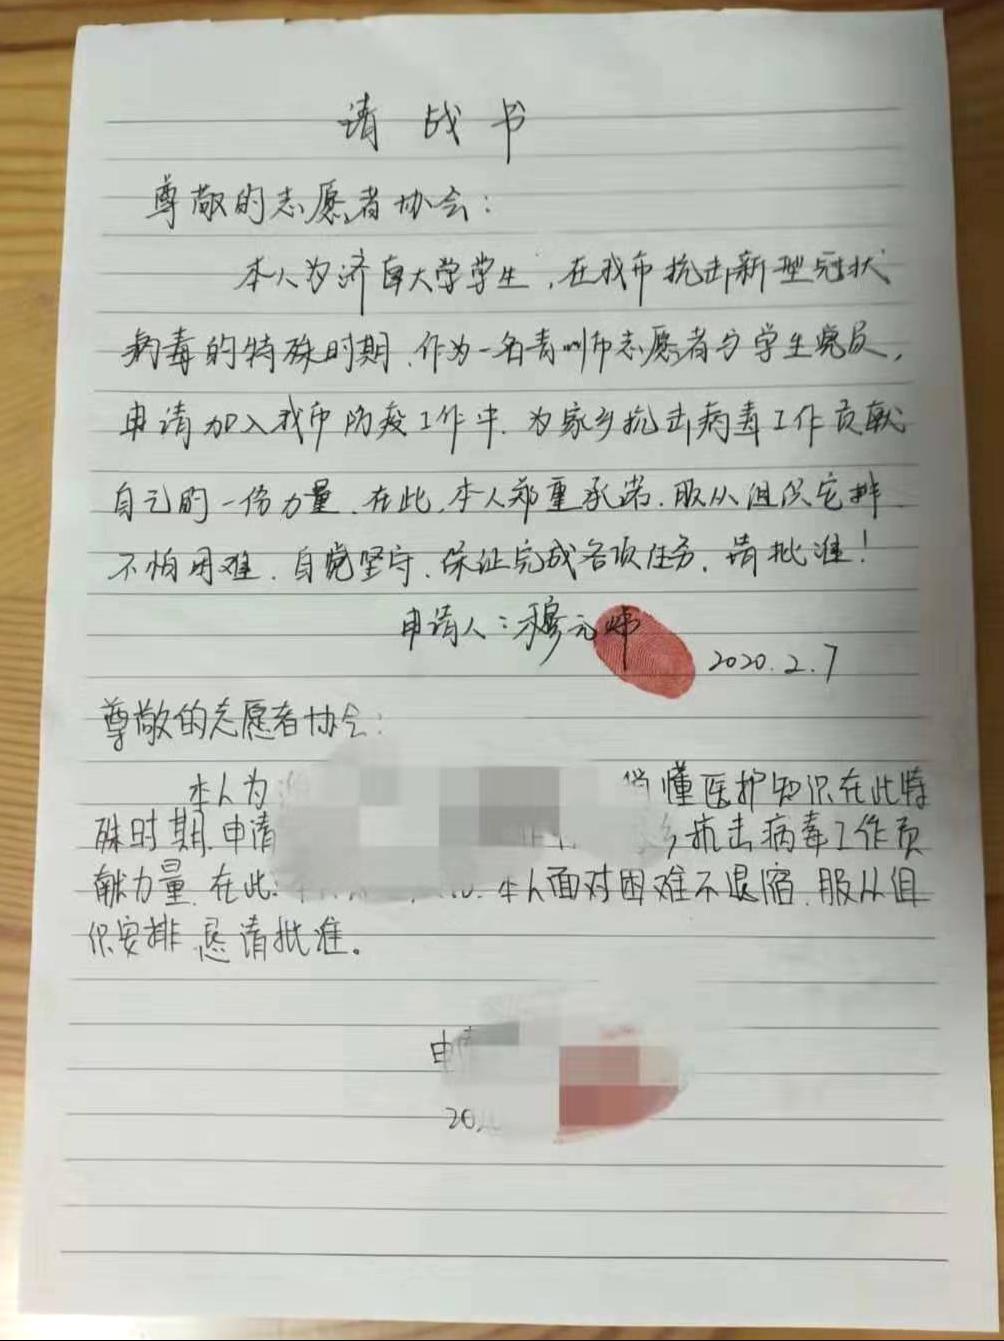 请战书
尊敬的志愿者协会：
本人为济南大学学生，在我市抗击新型冠状
病毒的特殊时期，作为一名青州市志愿者与学生党员，
申请加入我市防疫工作中，为家乡抗击病毒工作贡献
自己的一份力量，在此，本人郑重承诺，服从组织安排
不怕困难，自觉坚守，保证完成各项任务，请批准！
申请人：穆元
2020.2.7
尊敬的志愿者协会：
本人为 懂医护知识在此特
殊时期，申请 乡抗击病毒工作贡
献力量，在此 本人面对困难不退缩，服从组
织安排 恳请批准。
申
20